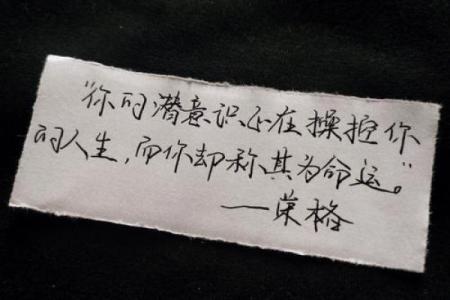 “你的潜意识正在操控你
的人生，而你却称其为命运。”
——荣格